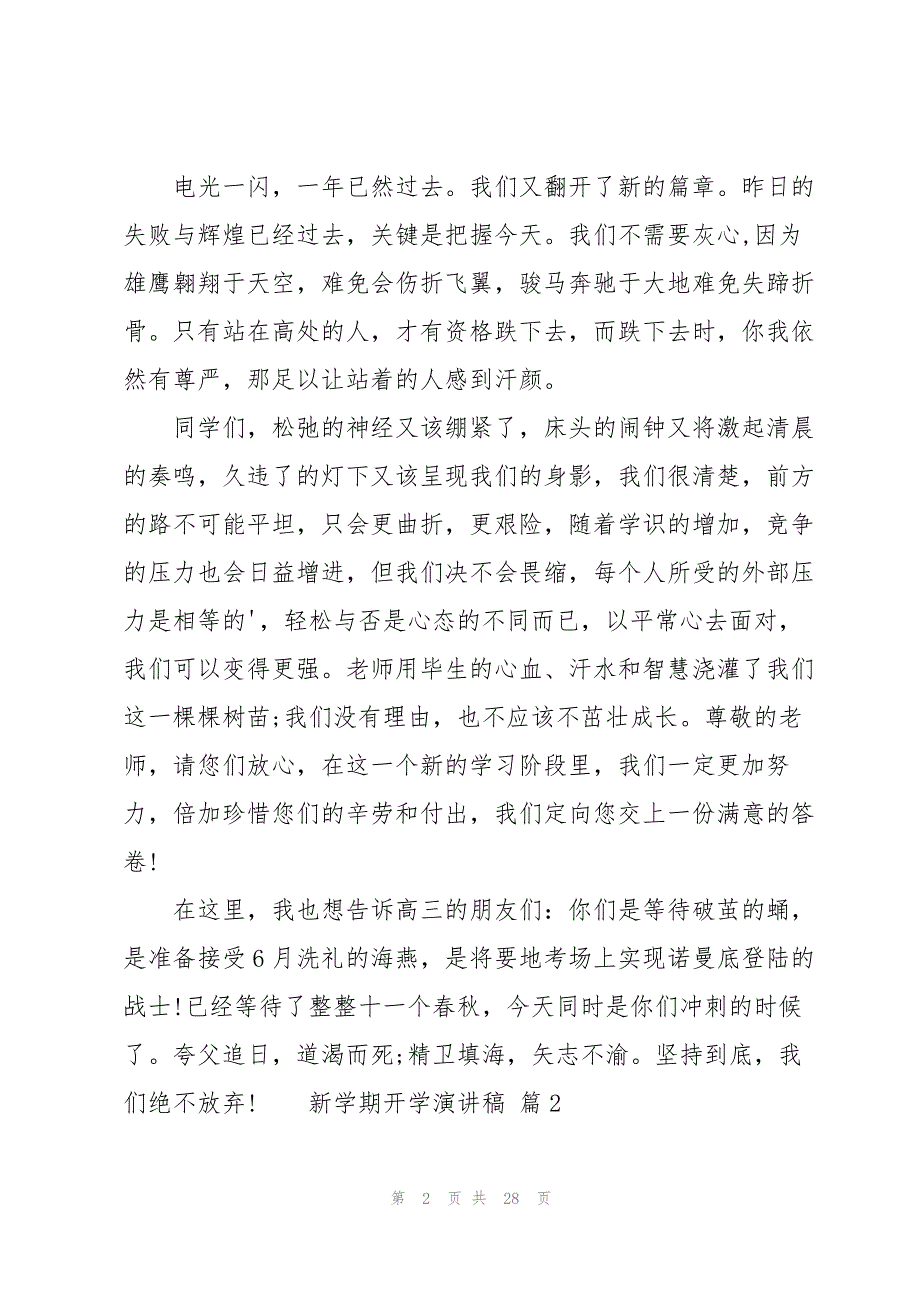 电光一闪，一年已然过去。我们又翻开了新的篇章。昨日的
失败与辉煌已经过去，关键是把握今天。我们不需要灰心,因为
雄鹰翱翔于天空，难免会伤折飞翼，骏马奔驰于大地难免失蹄折
骨。只有站在高处的人，才有资格跌下去，而跌下去时，你我依
然有尊严，那足以让站着的人感到汗颜。
同学们，松弛的神经又该绷紧了，床头的闹钟又将激起清晨
的奏鸣，久违了的灯下又该呈现我们的身影，我们很清楚，前方
的路不可能平坦，只会更曲折，更艰险，随着学识的增加，竞争
的压力也会日益增进，但我们决不会畏缩，每个人所受的外部压
力是相等的'，轻松与否是心态的不同而已，以平常心去面对，
我们可以变得更强。老师用毕生的心血、汗水和智慧浇灌了我们
这一棵棵树苗;我们没有理由，也不应该不茁壮成长。尊敬的老
师，请您们放心，在这一个新的学习阶段里，我们一定更加努
力，倍加珍惜您们的辛劳和付出，我们定向您交上一份满意的答
卷!
在这里，我也想告诉高三的朋友们：你们是等待破茧的蛹，
是准备接受6月洗礼的海燕，是将要地考场上实现诺曼底登陆的
战士!已经等待了整整十一个春秋，今天同时是你们冲刺的时候
了。夸父追日，道渴而死;精卫填海，矢志不渝。坚持到底，我
们绝不放弃!　　新学期开学演讲稿 篇2
第 2 页 共 28 页